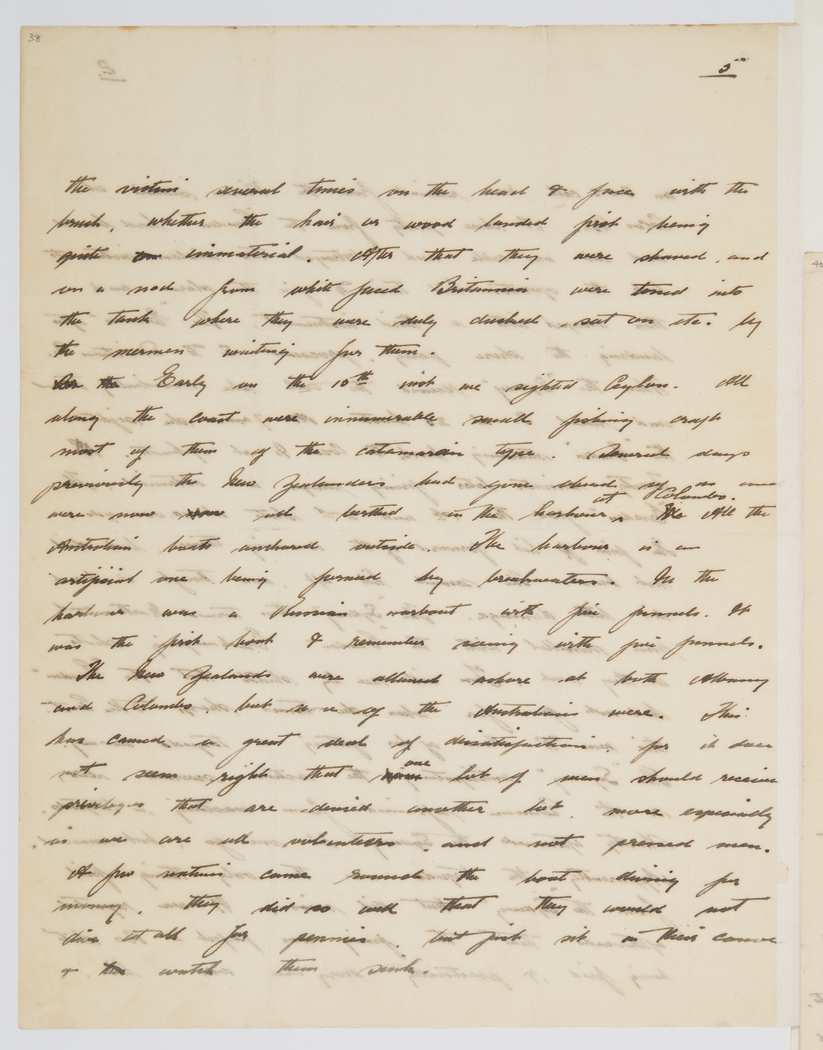 38
5
the victim several times on the head & face with the
brush, whether the hair or wood landed first being
quite immaterial. After that they were shaved, and
on a nod from white faced Britannia were turned into
the tank where they were duly ducked, sat on etc. by
the mermen waiting for them.
On the Early on the 10th inst we sighted Ceylon. All
along the coast were innumerable small fishing craft
most of them of the catamaran type. Several days
previously the New Zealanders had gone ahead of us and
at Colombo.
were now all berthed in the harbour All the
Australian boats anchored outside. The harbour is an
artificial one being formed by breakwaters. In the
harbour was a Russian warboat with five funnels. It
was the first boat I remember seeing with five funnels.
The New Zealands were allowed ashore at both Albany
and Colombo, but none of the Australians were. This
has caused a great deal of dissatisfaction, for it does
one
not seem right that lot of men should receive
privileges that are denied another lot, more especially
as we are all volunteers, and not pressed men.
A few natives came round the boat diving for
money. They did so well that they would not
dive at all for pennies, but just sit in their canoe
& watch them sink.